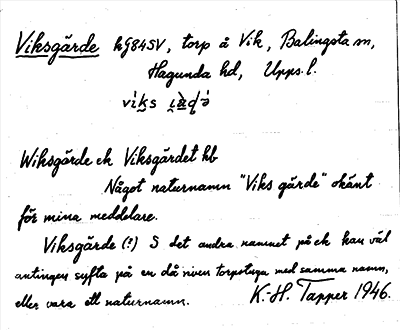 Viksgärde hG84SV, torp å Vik, Balingsta sn,
Hagunda hd, Upps. l.
Wiksgärde ek Viksgärdet hb
Något naturnamn "Viks gärde" okänt
för mina meddelare.
Viksgärde (?) S det andra namnet på ek kan väl
antingen syfta på en då riven torpstuga med samma namn,
eller vara ett naturnamn. K.-H. Tapper 1946.